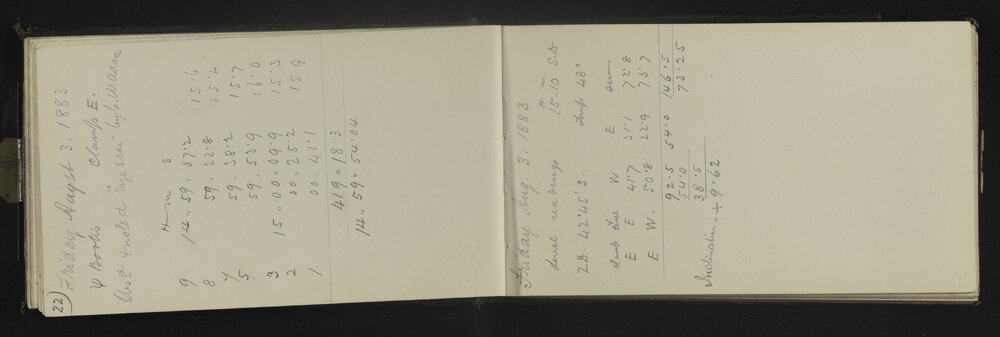 22)
Friday Augst 3. 1883
ψ Bootis Clamp E.
Obsd & noted "Eye &ear" by C. Wadan
H m s
9 14 .. 59 .. 07.2
8 59 .. 22.8 (15.6
7 59 .. 38.2 15.4
5 59 .. 53.9 15.7
3 15 .. 00 .. 09.9 16.0
2 00 .. 25.2 15.3
1 00 .. 41.1 15.9
419 .. 18 3
14 .. 59 .. 54.04
Friday Aug 3. 1883
Level readings 15.10 S.D
Z.D. 42°45' S. Temp 48°
Clamp W E
E E 41.7 31.1 72.8
E W. 50.8 22.9 73.7
92.5 54.0 146.5
54.0 73.25
38.5
Inclination = + 9.62